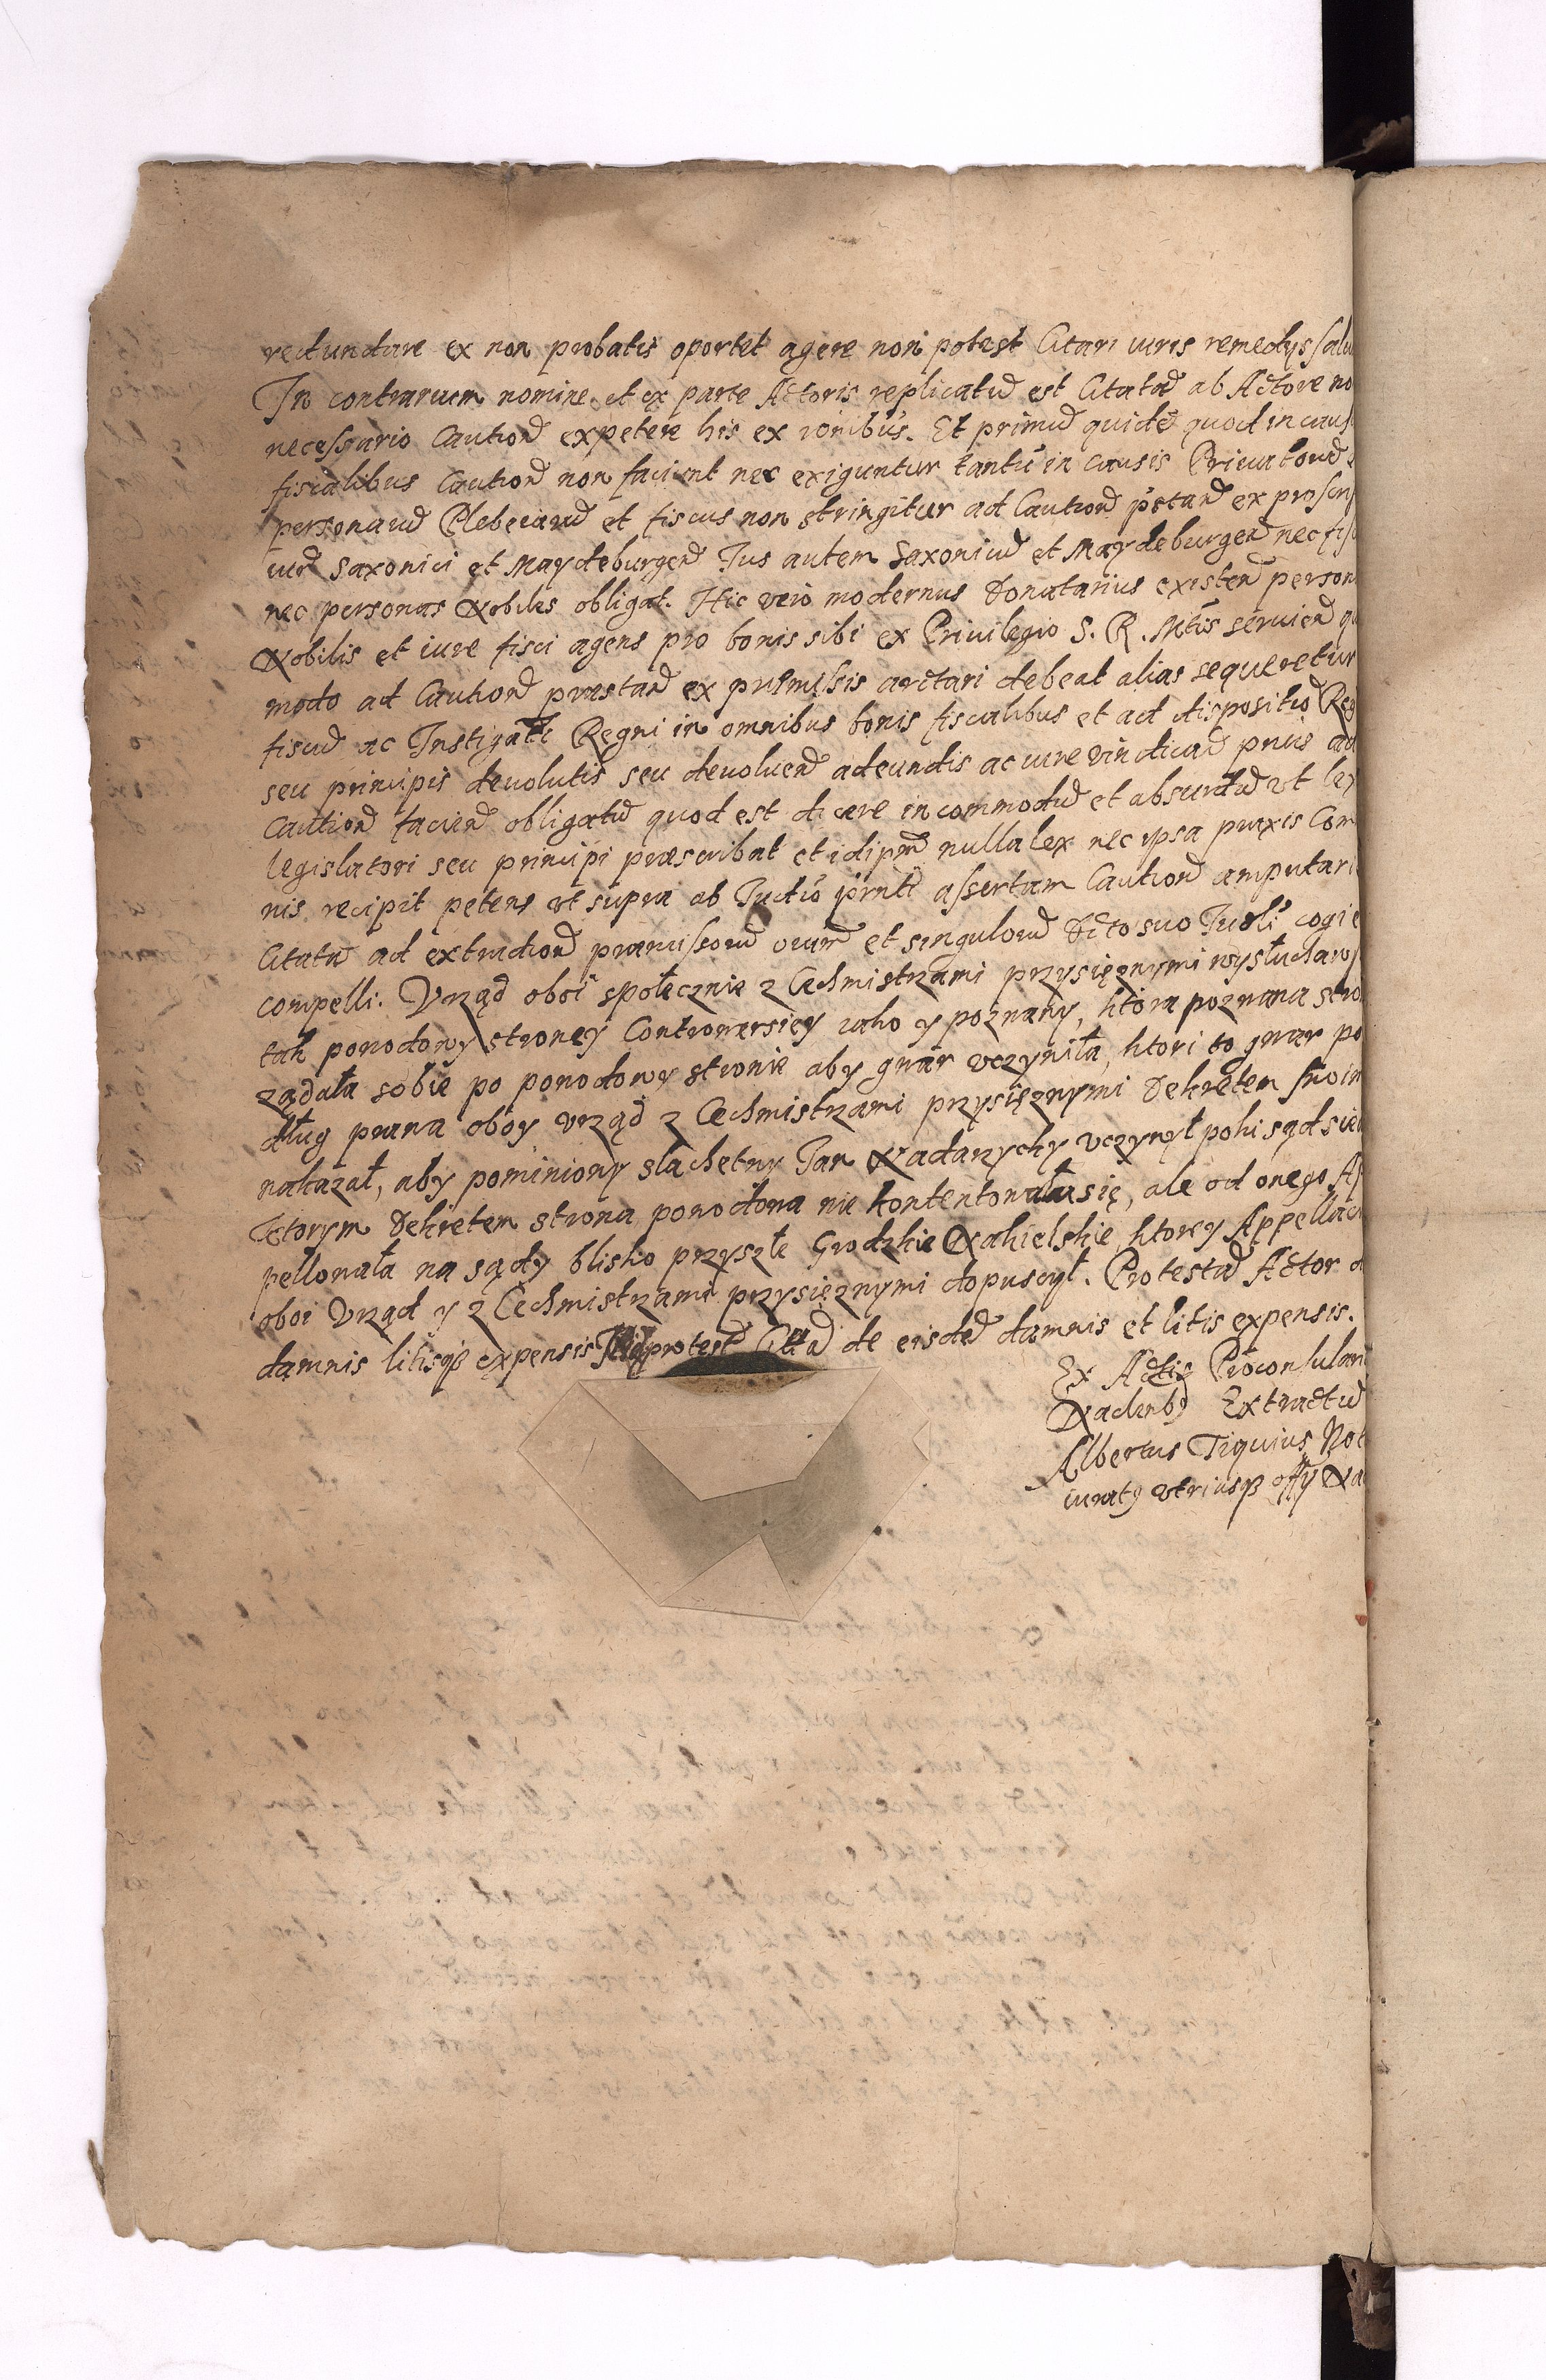 redundare ex non probatis oportet agere non potest Citari iuris remedys salu
In contrarium nomine et ex parte Actoris replicatū est Citatū ab Actore no
necessario Cautionē expetere his ex ionibus. Et primū quidē quod in caus
fiscalibus Cautionē non faciunt nec exiguntur tantū in causis Priuatorū
personarū Plebeiarū et fiscus non stringitur ad Cautionē pstanđ ex proscrip
iurē Saxonici et Maydeburgenđ Ius autem Saxonicū et Maydeburgenđ nec fis
nec personas Nobiles obligat. Hic vero modernus Donatarius existenđ person
Nobilis et iure fisci agens pro bonis sibi ex Priuilegio S. R. Mtis seruienđ qu
modo ad Cautionē præstanđ ex præmissis arctari debeat alias sequeretur
fiscū ac Instigatē Regni in omnibus bonis fiscalibus et ad dispositiō Reg
seu principis deuolutis seu deuoluenđ adeundis ac iure vindicanđ prius ad
Cautionē facienđ obligatū quod est dicere incommodū et absurdū vt lex
legislatori seu principi præscribat et idipm nulla lex nec ipsa praxis Com
nis recipit petens vt supra ab Iudiō pnti assertam Cautionē amputari
Citatū ad extradionē præmissorū oium et singulorū Dcto suo Iudli cogi e
compelli. Vrząd oboi społecznie z Cechmistrzami przysięznymi wysłuchawsz
tak powodowy stroney Controwersiey iako y poznany, ktora poznana stro
ządała sobie po powodowy stronie aby gwar vczyniła, ktori to gwar po
dług prawa oboy vrząd z Cechmistrzami przysięznymi Dekretem swoim
nakazał, aby pominiony slachetny Jan Nadarzychy vczynył poki sąd sie
Ktorym Dekretem strona powodowa nie kontentowała się, ale od onego Ap
pellowała na sądy blisko przyszłe Grodzkie Nakielskie, ktorey Appellac
oboi Vrząd y z Cechmistrzami przysięznymi dopuscył. Protestū Actor d
damnis litisqȝ expensis protestū Citatū de eisdē damnis et litis expensis.
Ex Actis Proconsulari
Extractū
Albertus Tiquius Not
iuratȝ vtriusqȝ offy Na